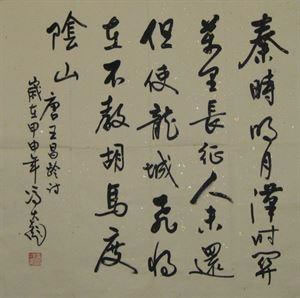 秦時明月漢时關
萬里長征人未還
但使龍城飛將
在不教胡馬度
陰山
唐王昌齡詩
歲在甲申年馮